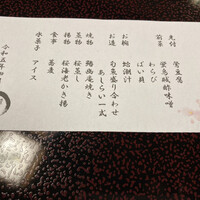 先付 蚕豆腐
前菜 蛍烏賊酢味噌
わらび
ばい貝
お椀 蛤潮汁
お造 旬魚盛り合わせ
あしらい一式
焼物 鰆幽庵焼き
蒸物 桜蒸し
揚物 桜海老かき揚
食事 蕎麦
水菓子 アイス
令和五年四月